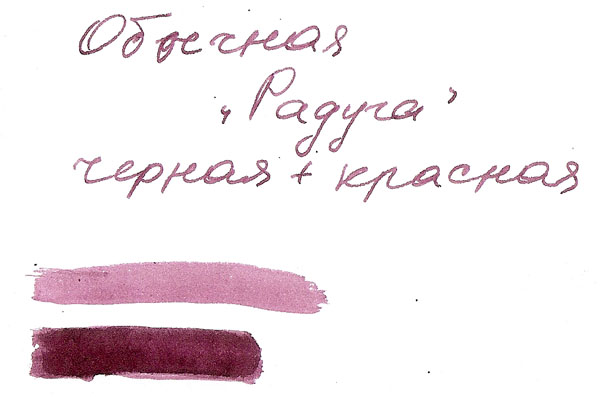 Обычная
„Радуга"
черная + красная